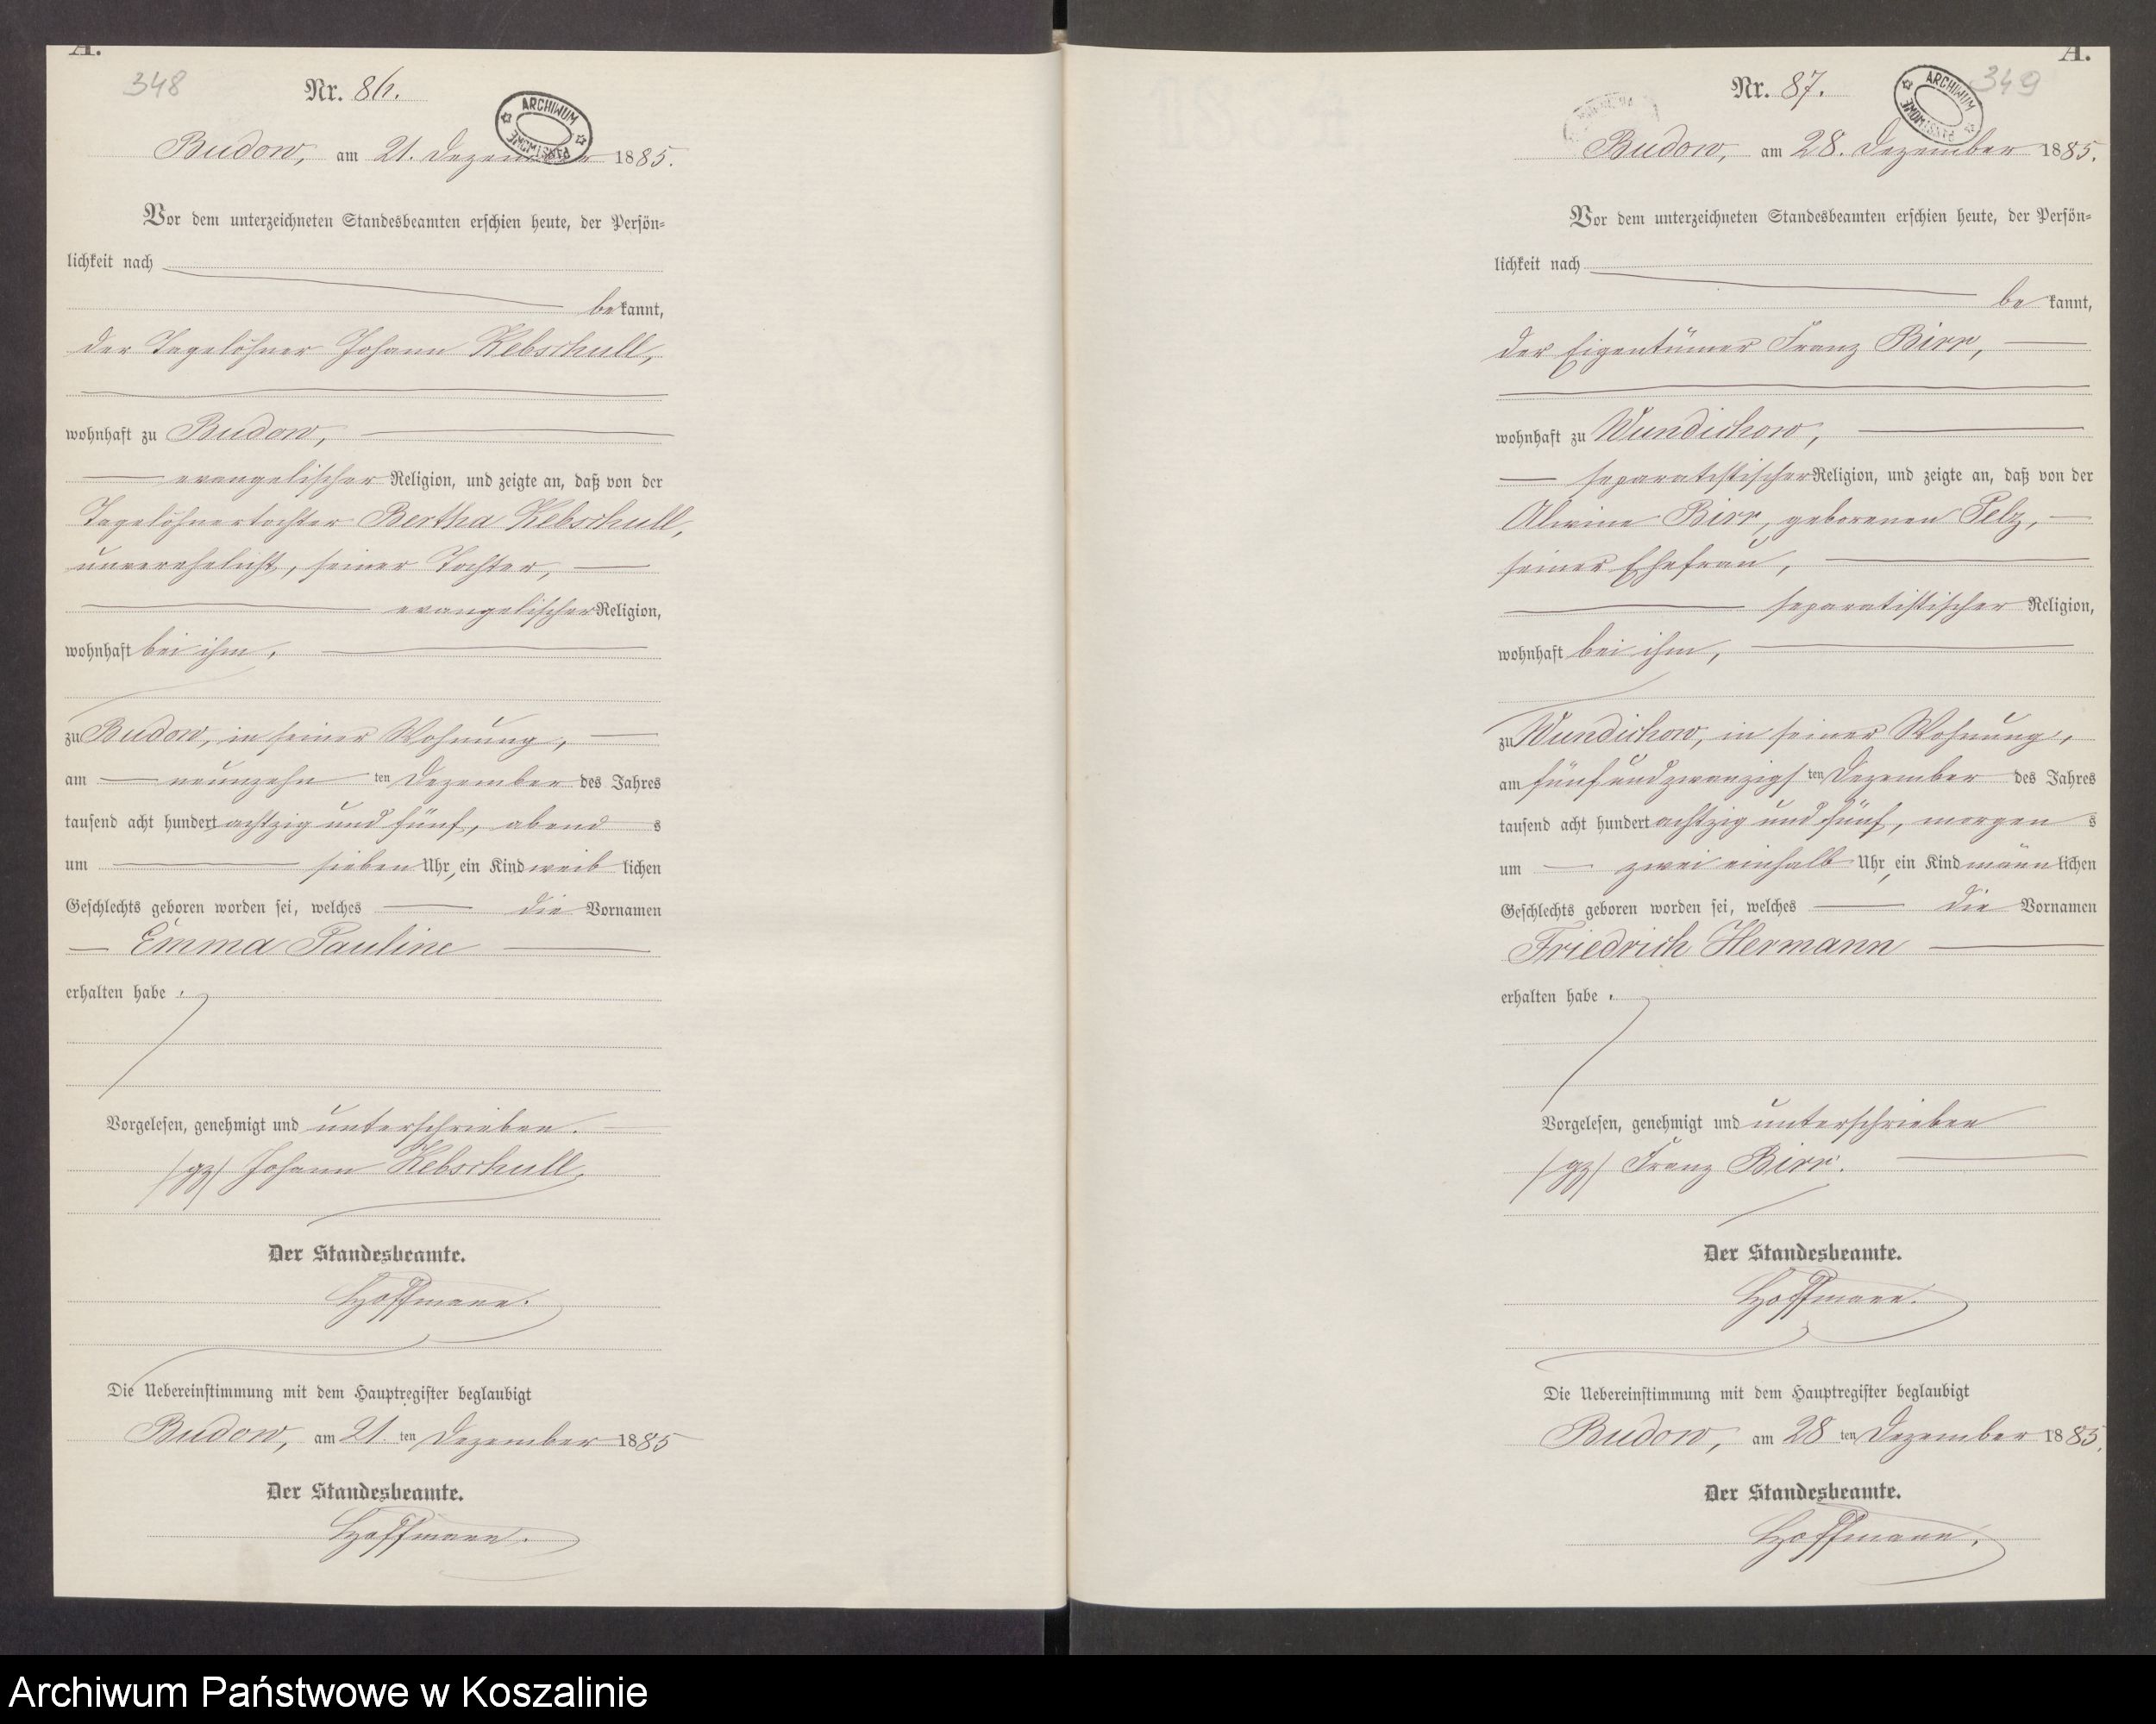 A.
348
Nr. 86.
ARCHIWUM PAŃSTWOWE
Budow, am 21. Dezember 1885.
Vor dem unterzeichneten Standesbeamten erschien heute, der Persön-
lichkeit nach
bekannt,
der Tagelöhner Johann Kebschull,
wohnhaft zu Budow,
evangelischer Religion, und zeigte an, daß von der
Tagelöhnertochter Bertha Kebschull,
unverehelicht, seiner Tochter,
evangelischer Religion,
wohnhaft bei ihm,
zu Budow, in seiner Wohnung,
am neunzehn ten Dezember des Jahres
tausend acht hundert achtzig und fünf, abend s
um sieben Uhr, ein Kind weib lichen
Geschlechts geboren worden sei, welches die Vornamen
Emma Pauline
erhalten habe.
Vorgelesen, genehmigt und unterschrieben.
/gz/ Johann Kebschull.
Der Standesbeamte.
Hoffmann.
Die Uebereinstimmung mit dem Hauptregister beglaubigt
Budow, am 21. ten Dezember 1885
Der Standesbeamte.
Hoffmann.
A.
349
Nr. 87.
ARCHIWUM PAŃSTWOWE
Budow, am 28. Dezember 1885.
Vor dem unterzeichneten Standesbeamten erschien heute, der Persön-
lichkeit nach
be kannt,
der Eigentümer Franz Birr,
wohnhaft zu Wundichow,
separatistischer Religion, und zeigte an, daß von der
Alwine Birr, geborenen Pelz,
seiner Ehefrau,
separatistischer Religion,
wohnhaft bei ihm,
zu Wundichow, in seiner Wohnung,
am fünfundzwanzigs ten Dezember des Jahres
tausend acht hundert achtzig und fünf, morgen s
um zwei einhalb Uhr, ein Kind männ lichen
Geschlechts geboren worden sei, welches die Vornamen
Friedrich Hermann
erhalten habe.
Vorgelesen, genehmigt und unterschrieben
/gz/ Franz Birr.
Der Standesbeamte.
Hoffmann.
Die Uebereinstimmung mit dem Hauptregister beglaubigt
Budow, am 28 ten Dezember 1885.
Der Standesbeamte.
Hoffmann.
Archiwum Państwowe w Koszalinie